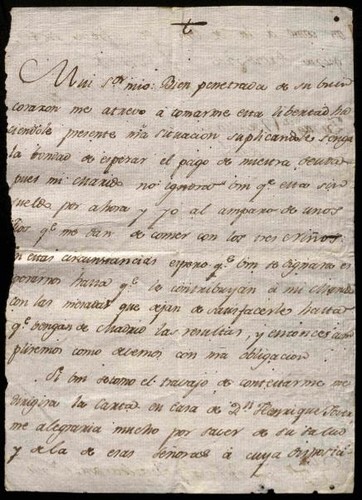 Mui S.or mio: Bien penetrada de su buen
corazon me atrevo à tomarme esta libertad ha
ciendole presente mi situacion suplicandole tenga
la bondad de esperar el pago de nuestra deuda
pues mi Marido no ignora bm q.e esta sin
sueldo por ahora y yo al amparo de unos
tios q.e me dan de comer con los tres Niños
en estas circunstancias espero q.e bm se dignara es
perarnos hasta q.e le contribuyan à mi
con las mesadas que dejan de satisfacerle hasta
q.e bengan de Madrid las resultas, y entonces
pliremos como devemos con nra obligacion
Si bm se toma el trabajo de contestarme me
dirigira la Carta en casa de D.n Henrrique
me alegraria mucho por saver de su salud
y de la de esas Señoras à cuya